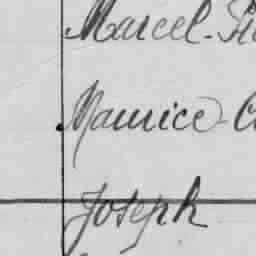 Marcel-
Maurice-
Joseph